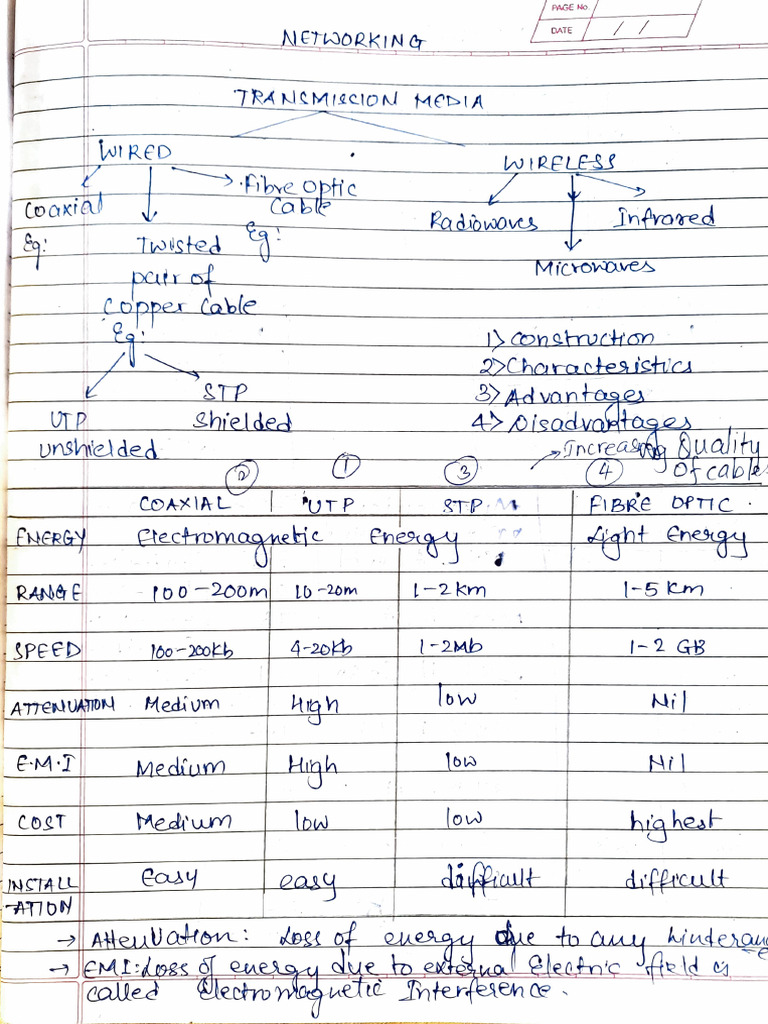 PAGE No.
DATE / /
NETWORKING
TRANSMISSION MEDIA
WIRED
WIRELESS
Coaxial
Fibre Optic
Cable
Radiowaves
Infrared
Eg:
Twisted
Eg:
Microwaves
pair of
Copper Cable
Eg:
1) Construction
2) Characteristics
STP
3) Advantages
UTP
Shielded
4) Disadvantages
unshielded
→ Increasing Quality
Of cable
② ① ③ ④
COAXIAL UTP STP FIBRE OPTIC
ENERGY Electromagnetic Energy Light Energy
RANGE 100-200m 10-20m 1-2km 1-5 km
SPEED 100-200kb 4-20kb 1-2Mb 1-2 GB
ATTENUATION Medium High low Nil
E.M.I Medium High low Nil
COST Medium low low highest
INSTALL Easy easy difficult difficult
-ATION
→ Attenuation: Loss of energy due to any hinderance
→ EMI: Loss of energy due to external Electric field is
called Electromagnetic Interference.